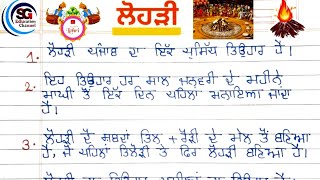 SG
Education
Channel
ਲੋਹੜੀ
1. ਲੋਹੜੀ ਪੰਜਾਬ ਦਾ ਇੱਕ ਪ੍ਰਸਿੱਧ ਤਿਉਹਾਰ ਹੈ।
2. ਇਹ ਤਿਉਹਾਰ ਹਰ ਸਾਲ ਜਨਵਰੀ ਦੇ ਮਹੀਨੇ
ਮਾਘੀ ਤੋਂ ਇੱਕ ਦਿਨ ਪਹਿਲਾਂ ਮਨਾਇਆ ਜਾਂਦਾ
ਹੈ।
3. ਲੋਹੜੀ ਦੋ ਸ਼ਬਦਾਂ ਤਿਲ + ਰੋੜੀ ਦੇ ਮੇਲ ਤੋਂ ਬਣਿਆ
ਹੈ, ਜੋ ਪਹਿਲਾਂ ਤਿਲੋੜੀ ਤੇ ਫਿਰ ਲੋਹੜੀ ਬਣਿਆ ਹੈ।